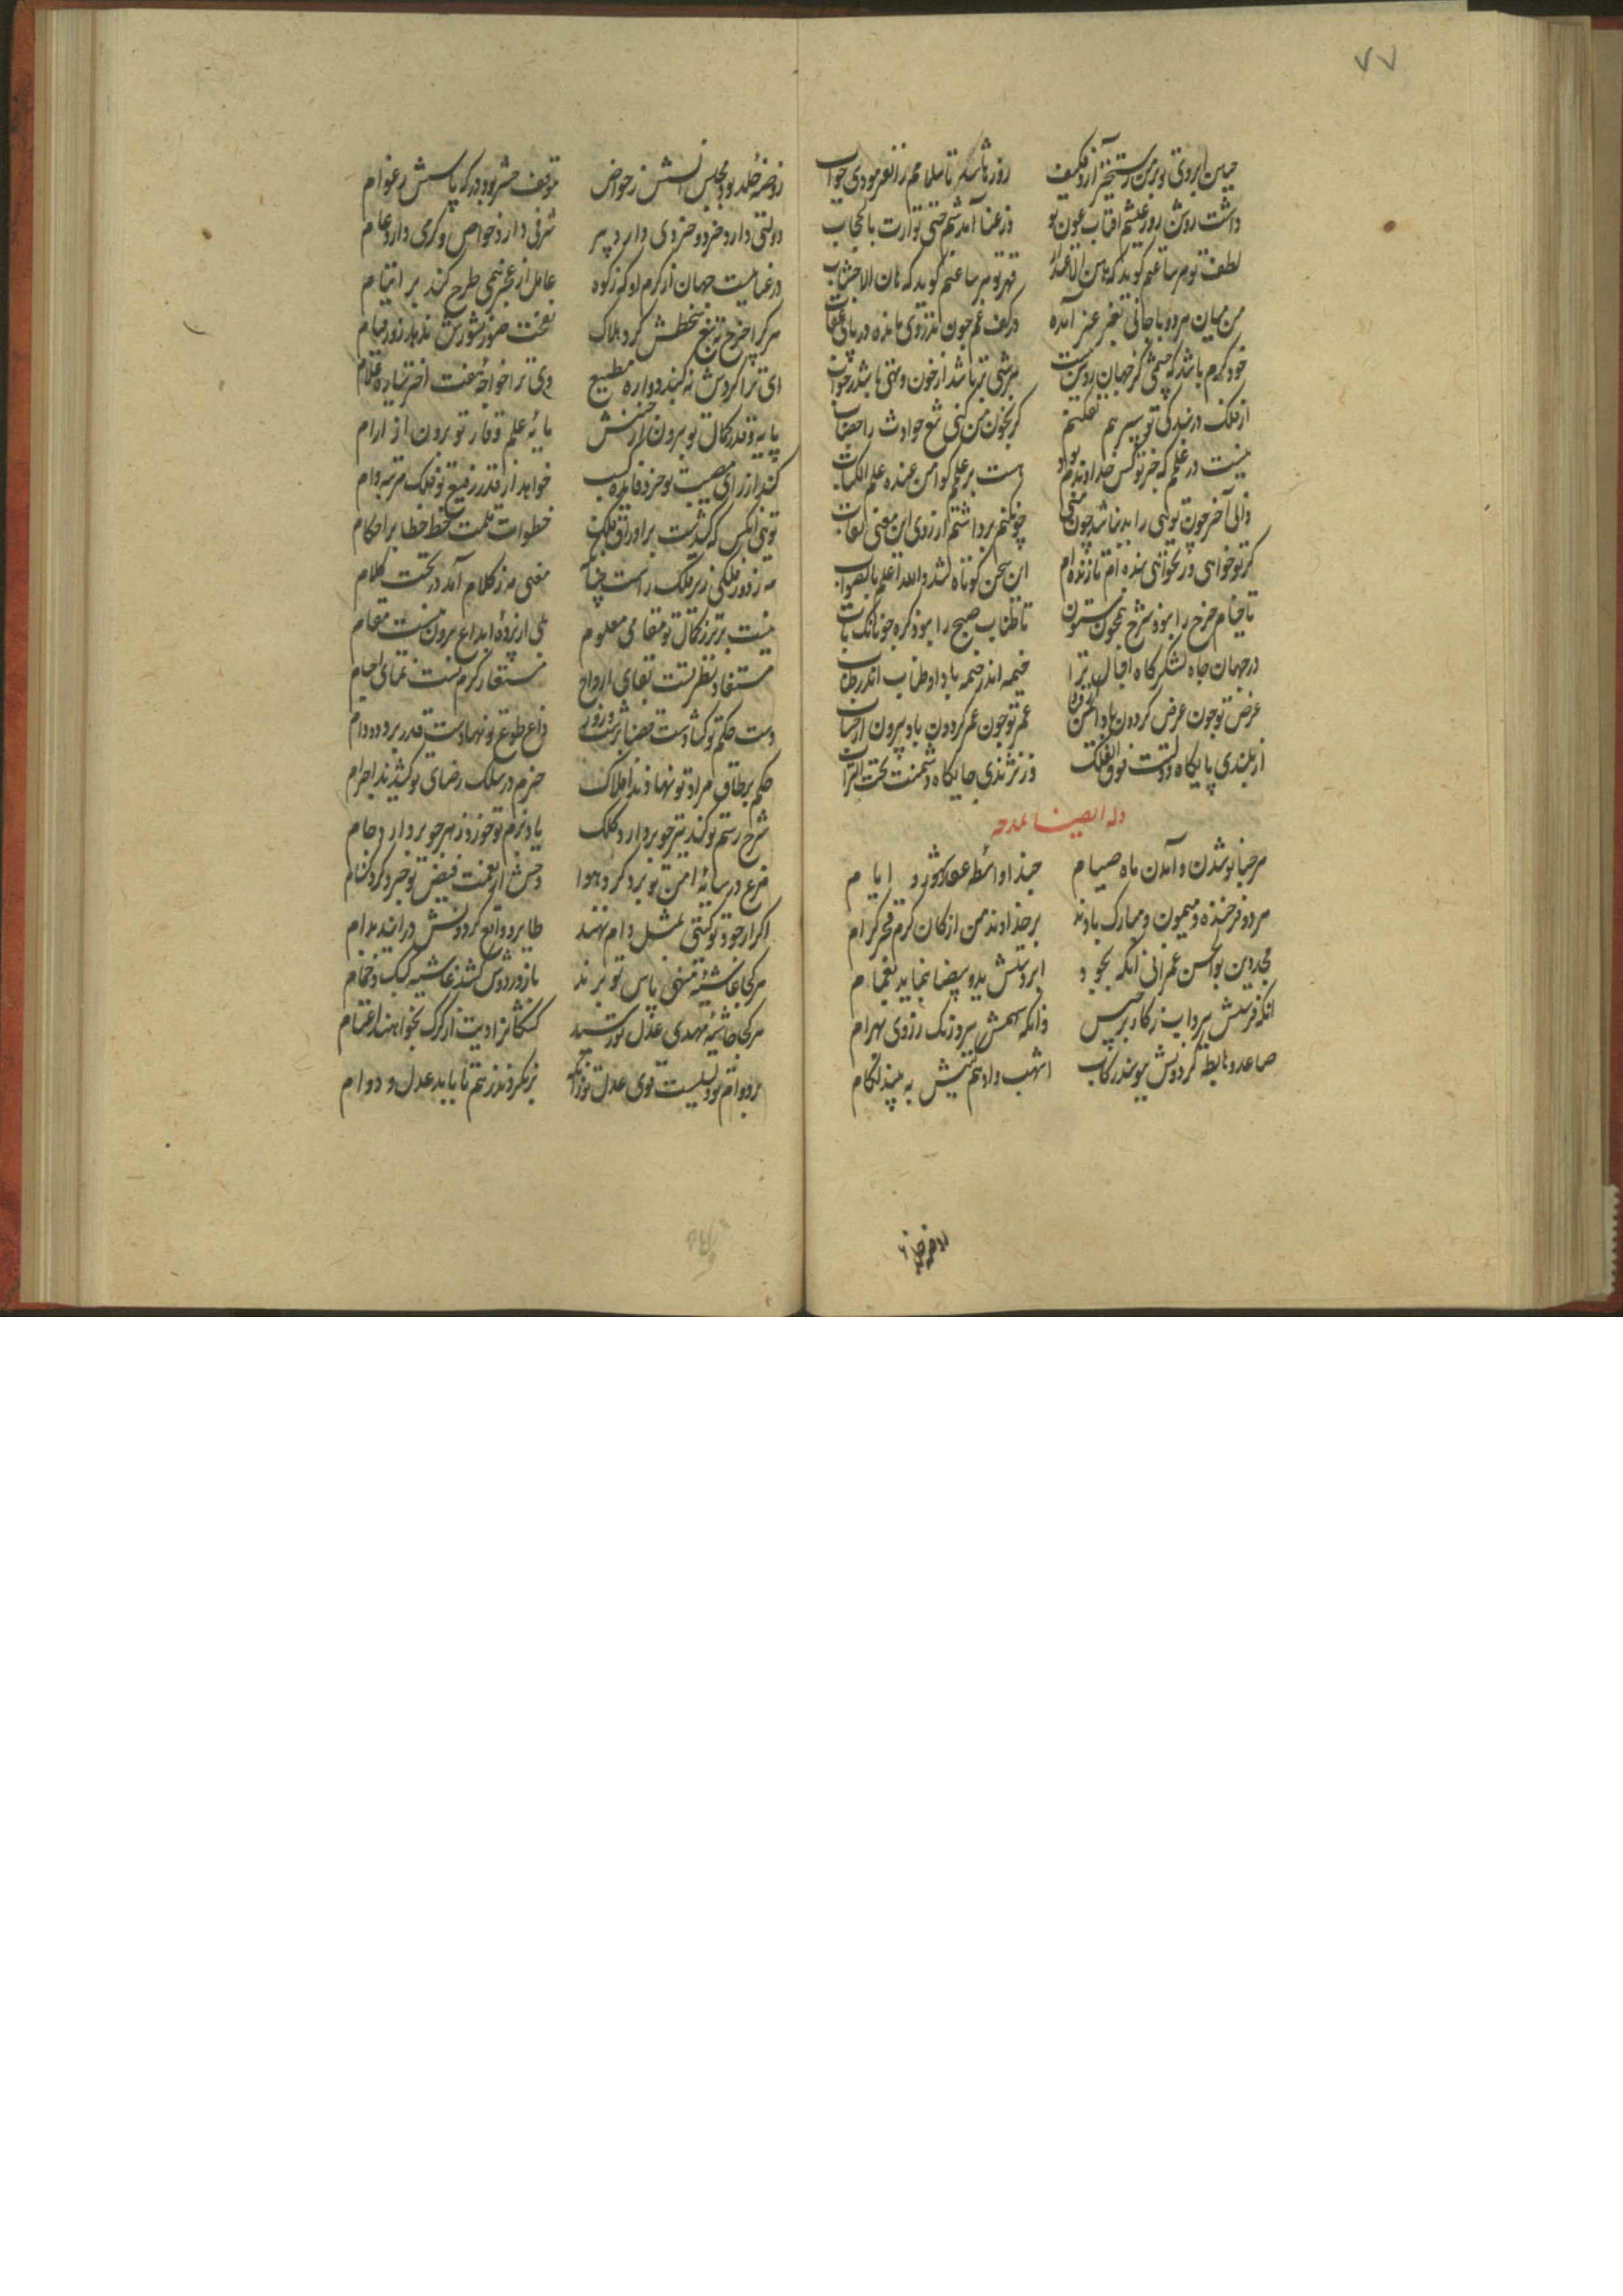 ۷۷
چین ابروی تو بر من رستخیز آرد کیف روزها شد تا سلامم را نفرمودی جواب
داشت روشن روز عیشم آفتاب عون تو وز عنا آمد شبم حتی توارت بالحجاب
لطف تو هر ساعتم گوید که هین الاعتذار قهر تو هر ساعتم گوید که هان الاجتناب
من میان هر دو با جانی بغرغر آمده در کف غم چون تذروی مانده در پای عقاب
خود کرم باشد که چشمی کز جهان روشن بتست هر شبی تر باشد از خون وتهی باشد ز خواب
از فلک در بندگی تو سپر هم نفکنم گر بخون من کنی تیغ حوادث را خضاب
نیست در علمم که جز تو کس خداوندم بود هست بر علمم گوا من عنده علم الکتاب
دانی آخر چون تویی را بد نباشد چون منی چون کنم برداشتم از روی این معنی نقاب
گر تو خواهی ور نخواهی بنده‌ام تا زنده‌ام این سخن کوتاه شد والله اعلم بالصواب
تا خیام چرخ را نبود شرج همچون ستون تا طناب صبح را نبود گره چونانک تاب
در جهان جاه لشکرگاه اقبال ترا خیمه اندر خیمه باد او طناب اندر طناب
عرض تو چون عرض گردون باد ایمن از فنا عمر تو چون عمر گردون باد بیرون از حساب
از بلندی پایگاه دولتت فوق الفلک وز نژندی جایگاه دشمنت تحت التراب
وله ایضا بمدحه
مرحبا نو شدن و آمدن ماه صیام حبذا واسطه عقد شهور و ایام
هر دو فرخنده و میمون و مبارک بادند بر خداوند من از کان کرم فخر کرام
مجد دین بوالحسن عمرانی آنکه بجود ابر دستش ید و بیضا بنماید بغمام
آنکه فرمانش ببرد آب ز کار برجیس وانکه سهمش ببرد زنگ ز روی بهرام
صاعد و هابطه گردونش ببوسند رکاب اشهب و ادهم گیتیش به پیچند لگام
روضه خلد
روضه خلد بود مجلس انسش ز خواص موقف حشر بود درگه پاسش ز عوام
دولتی دارد و خردی و خردی دارد پیر شرفی دارد خاص و کرمی دارد عام
در غنا نیست جهان از کرم او که زکوة عامل از عجز همی طرح کند بر ایتام
هر کرا چرخ به تیغ سخطش کرد هلاک بعثت صور نشورش ندهد روز قیام
ای ترا گردش نه گنبد دواره مطیع وی ترا خواجه هفت اختر سیاره غلام
پایه قدر و کمال تو برون از جنبش پایه علم و وقار تو برون از آرام
کند از رای مصیبت بوجد فایده کسب خواهد از قدر رفیع تو فلک مرتبه وام
تویی آنکس که کشیدست بر اوراق فلک خطوات قلمت خط خطا بر احکام
نیست برتر ز کمال تو مقامی معلوم بلی از پرده ابداع برون نیست مقام
مستفاد نظر تست بقای ارواح مستعار کرم تست نمای اجسام
دست حکم تو گشادست قضا بر شب و روز داغ طوع تو نهادست قدر بر دد و دام
حکم بر طاق مراد تو نهادند افلاک جزم در سلک رضای تو کشیدند اجرام
شرح رسم تو کند تیر چو بردارد کلک یاد بزم تو خورد زهره چو بردارد جام
مرغ در سایه امن تو پرد گرد هوا وحش از نعمت فیض تو چرد گرد کنام
اگر از جود تو گیتی بمثل دام نهند طایر و واقع گردونش درآیند بدام
هرکجا غاشیه منهی پاس تو برند باز در دوش کشد غاشیه کبک و حمام
هرکجا خاتمه مهدی عدل تو رسید